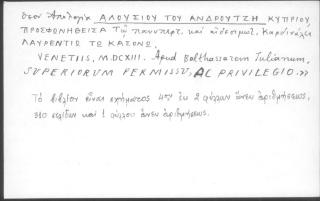 Απολογία ΑΛΟΥΣΙΟΥ ΤΟΥ ΑΝΔΡΟΥΤΖΗ ΚΥΠΡΙΟΥ,
ΠΡΟΣΦΩΝΗΘΕΙΣΑ Τῷ πανυπερτ. καὶ αἰδεσιμωτ. Καρδινάλει
ΛΑΥΡΕΝΤΙῼ ΤΩ ΚΑΣΟΝῼ.
VENETIIS, M.DCXIII. Apud Balthassarem Iulianum,
SUPERIORUM PERMISSU, AC PRIVILEGIO.»
Τὸ βιβλίον εἶναι σχήματος 4ον ἐκ 2 φύλλων ἄνευ ἀριθμήσεως,
310 σελίδων καὶ 1 φύλλου ἄνευ ἀριθμήσεως.